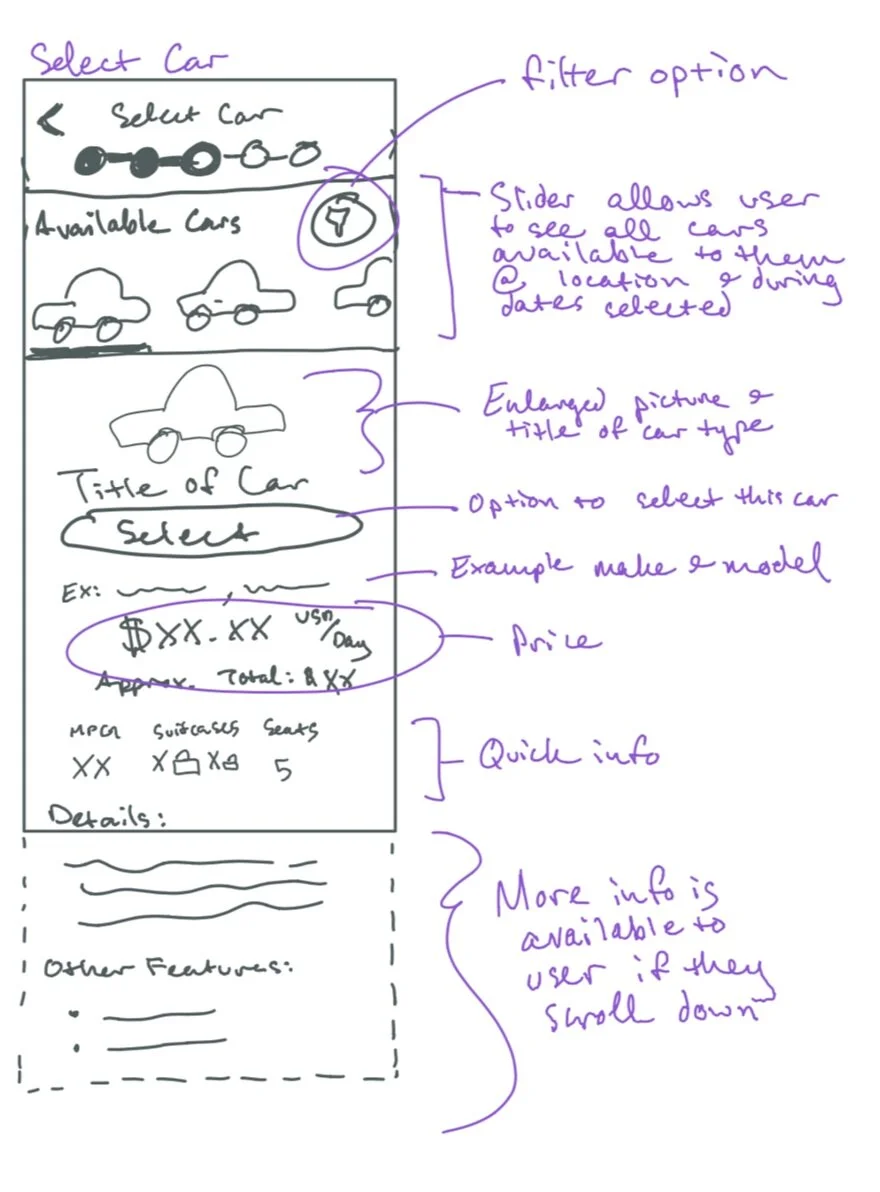 Select Car
filter option
Select Car
Available Cars
Slider allows user
to see all cars
available to them
@ location & during
dates selected
Enlarged picture &
title of car type
Title of Car
Select
Option to select this car
Ex:
Example make & model
$XX.XX USD/Day
Approx. Total: $XX
Price
MPG Suitcases Seats
XX X X 5
Quick info
Details:
More info is
available to
user if they
scroll down
Other Features: